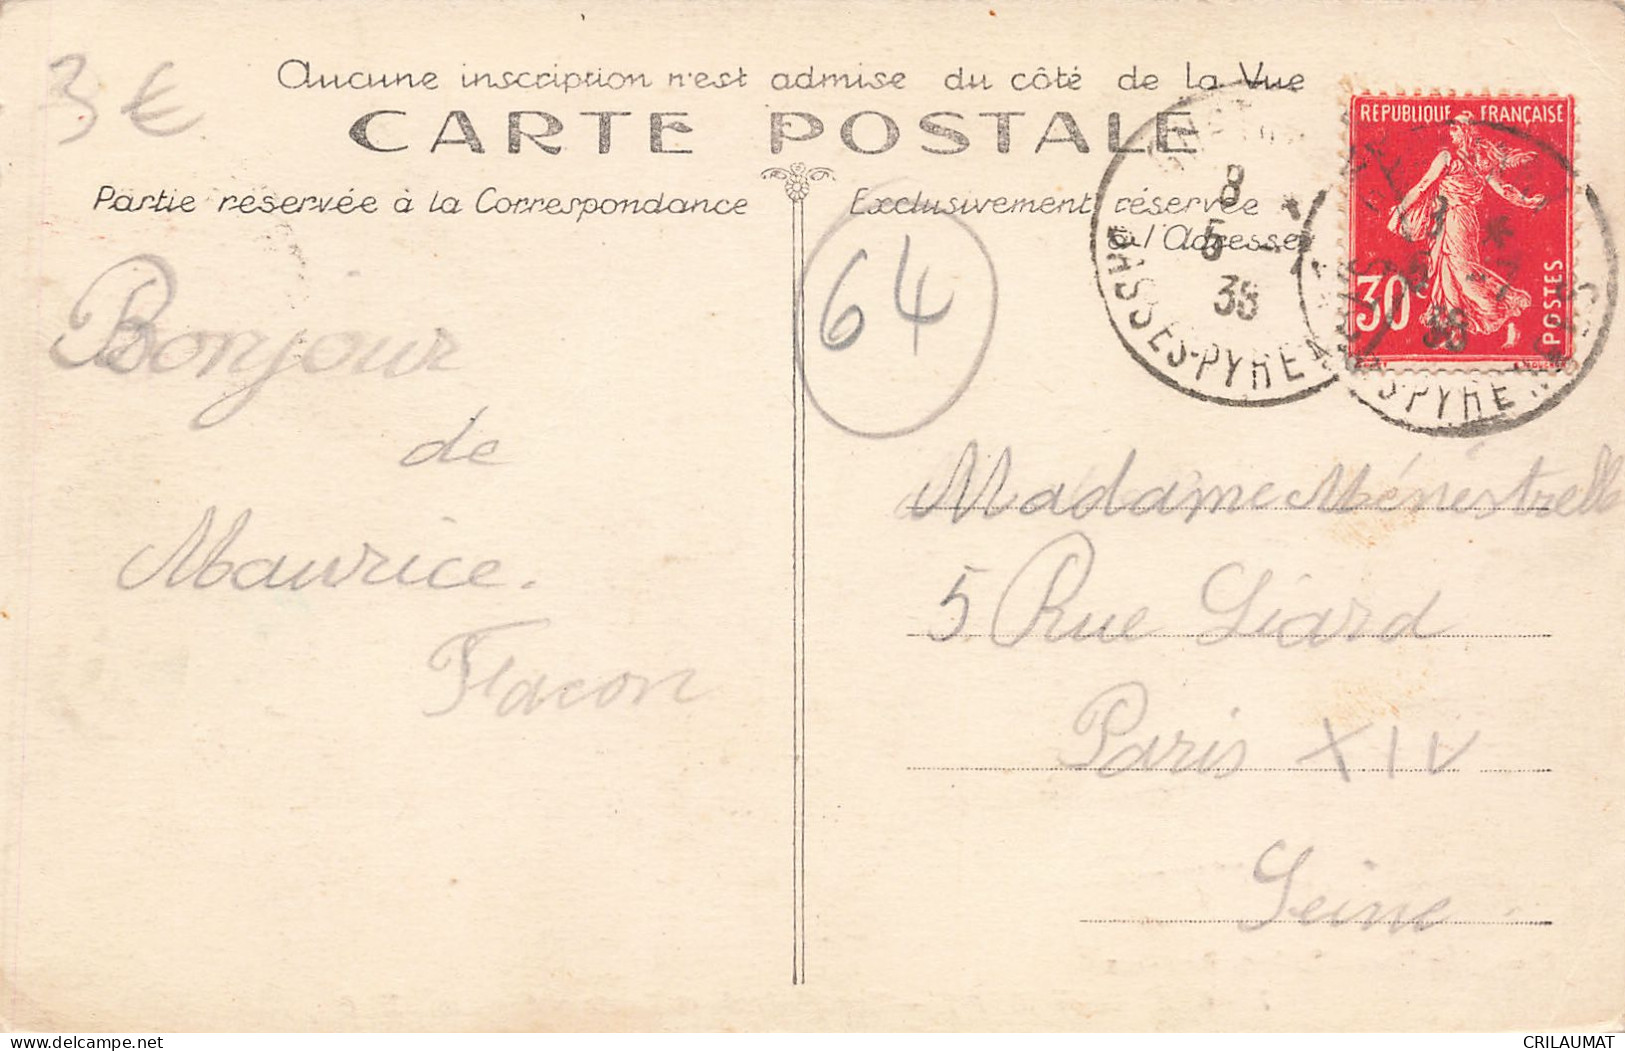 3 €
Aucune inscription n'est admise du côté de la Vue
CARTE POSTALE
Partie réservée à la Correspondance
Exclusivement réservée
à l'Adresse
RÉPUBLIQUE FRANÇAISE
30
POSTES
8
5
38
BASSES-PYRÉN
64
Bonjour
de
Maurice.
Flacon
Madame Ménestrelle
5 Rue Liard
Paris XIV
Seine
CRILAUMAT